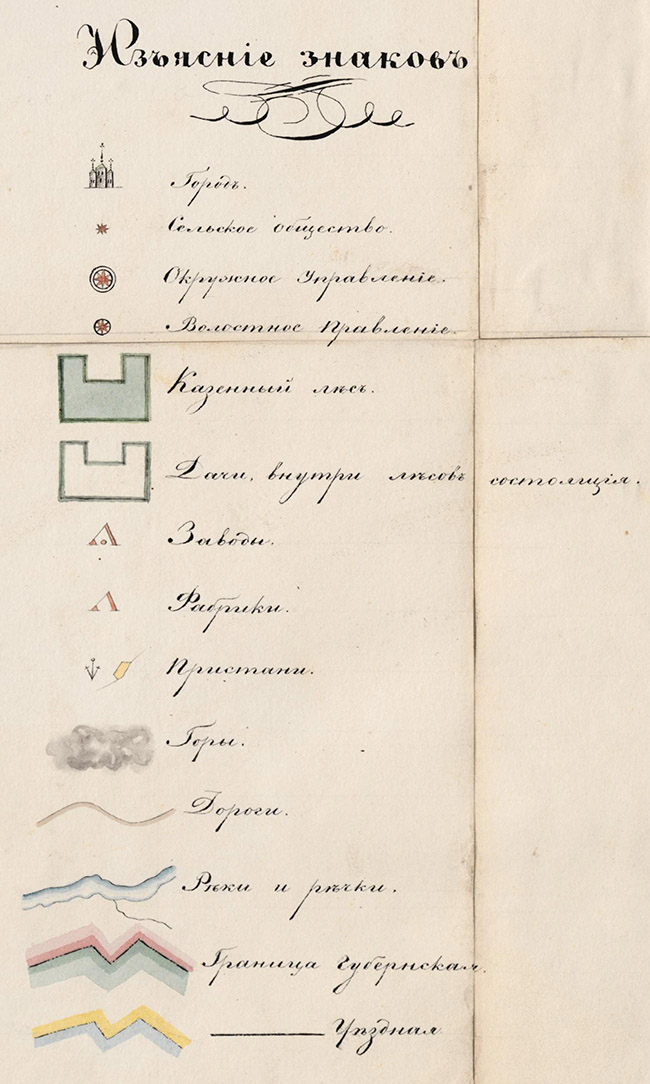 Изъясніе знаковъ
Городъ.
Сельское общество.
Окружное Управленіе.
Волостное Правленіе.
Казенный лѣсъ.
Дачи, внутри лѣсовъ состоящія.
Заводы.
Фабрики.
Пристани.
Горы.
Дороги.
Рѣки и рѣчки.
Граница Губернская.
Уѣздная